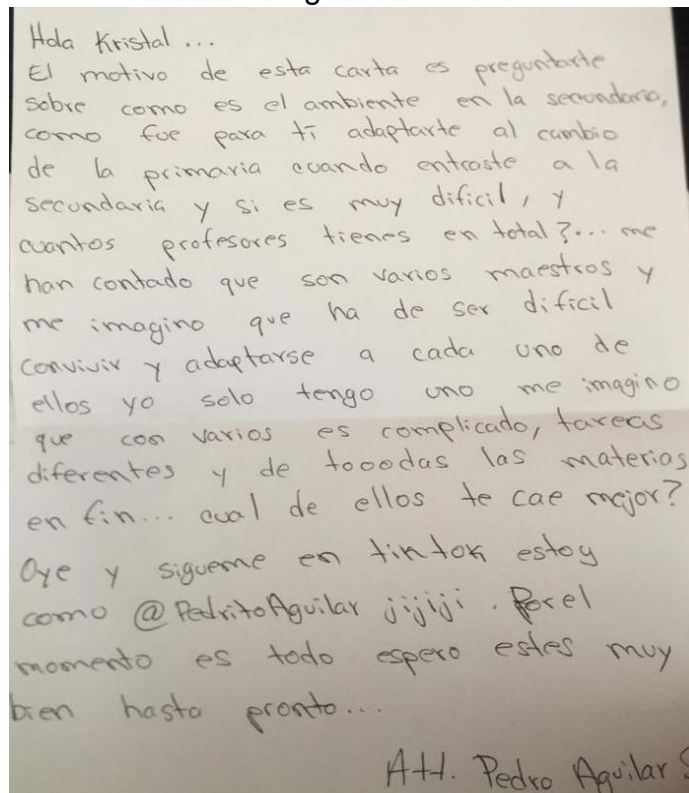 Hola Kristal...
El motivo de esta carta es preguntarte
sobre como es el ambiente en la secundaria,
como fue para ti adaptarte al cambio
de la primaria cuando entraste a la
secundaria y si es muy dificil, y
cuantos profesores tienes en total?... me
han contado que son varios maestros y
me imagino que ha de ser dificil
convivir y adaptarse a cada uno de
ellos yo solo tengo uno me imagino
que con varios es complicado, tareas
diferentes y de tooodas las materias
en fin... cual de ellos te cae mejor?
Oye y sigueme en tintok estoy
como @PedritoAguilar jijiji. Por el
momento es todo espero estes muy
bien hasta pronto...
Att. Pedro Aguilar S